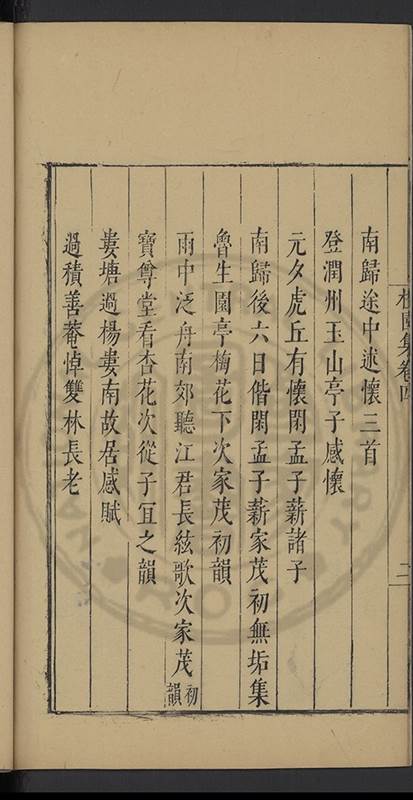 集卷四
二
南歸途中述懷三首
登潤州玉山亭子感懷
元夕虎丘有懷閑孟子薪諸子
南歸後六日偕閑孟子薪家茂初無垢集
魯生園亭梅花下次家茂初韻
雨中泛舟南郊聽江君長絃歌次家茂初韻
寶尊堂看杏花次從子宜之韻
婁塘過楊婁南故居感賦
過積善菴悼雙林長老